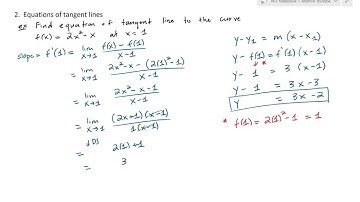 2. Equations of tangent lines
ex Find equation of tangent line to the curve
f(x) = 2x²-x at x=1
slope = f'(1) = lim x→1 f(x) - f(1) / x-1
= lim x→1 2x²-x - (2(1)²-1) / x-1
= lim x→1 2x²-x-1 / x-1
= lim x→1 (2x+1)(x-1) / 1(x-1)
↓DS
= 2(1)+1
= 3
y-y₁ = m(x-x₁)
y - f(1) = f'(1) (x-1)
y - 1 = 3 (x-1)
y - 1 = 3x-3
y = 3x-2
* f(1) = 2(1)²-1 = 1